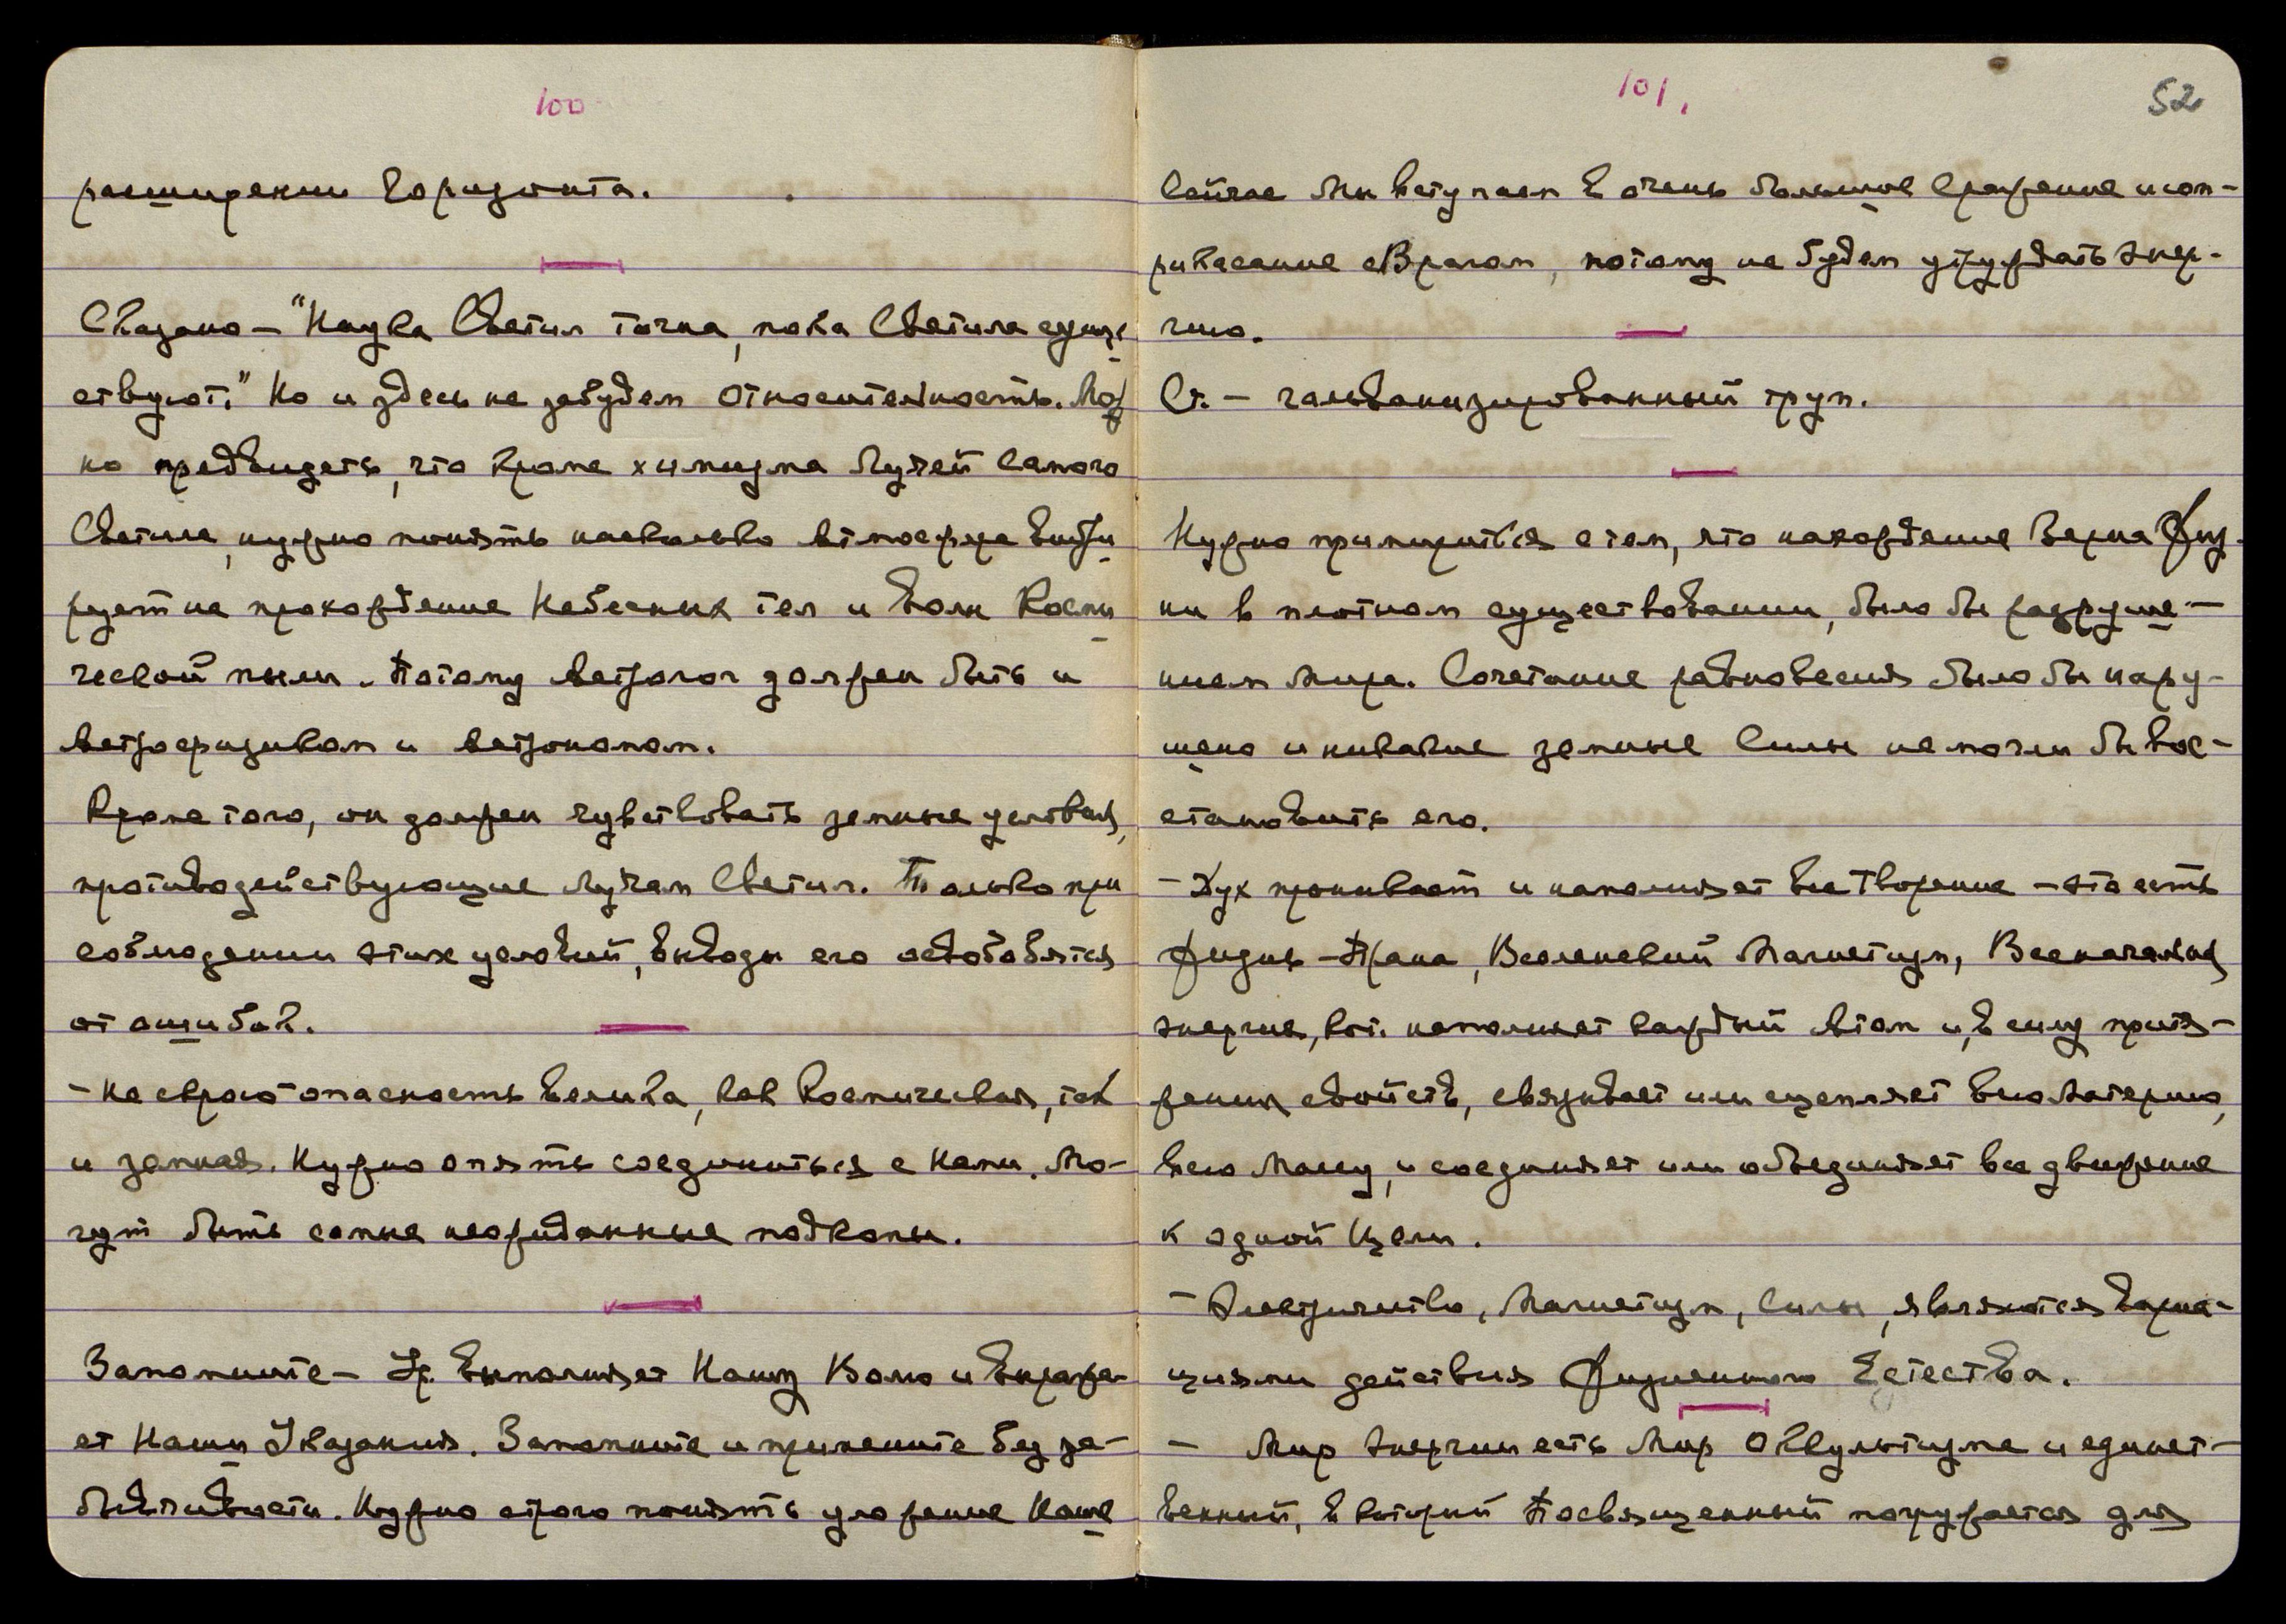 100
расширении Горизонта.
Сказано – "Наука Светил точна, пока Светила суще
ствуют." Но и здесь не забудем относительность. Мож
но предвидеть, что кроме химизма Лучей самого
Светила, нужно понять насколько атмосфера вибри
рует на прохождение Небесных тел и волн Косми
ческой пыли. Потому Астролог должен быть и
Астрофизиком и Астрономом.
Кроме того, он должен чувствовать земные условия,
противодействующие Лучам Светил. Только при
соблюдении этих условий, выводы его освободятся
от ошибок.
– Не скрою опасность велика, как Космическая, так
и земная. Нужно опять соединиться с Нами. Мо-
гут быть самые неожиданные подкопы.
Запомните – Ур. выполняет Нашу Волю и выража-
ет Наши Указания. Запомните и примените без за-
бывчивости. Нужно строго понять уложение Наше
101.
52
Сейчас Мы вступаем в очень большое Сражение и соп-
рикасание с Врагом, потому не будем утруждать энер-
гию.
Ст. – гальванизированный труп.
Нужно примириться с тем, что нахождение Зерна Жиз-
ни в плотном существовании, было бы разруше-
нием Мира. Сочетание равновесия было бы нару-
шено и никакие земные Силы не могли бы вос-
становить его.
– Дух проникает и наполняет все Творение – это есть
Жизнь – Прана, Вселенский Магнетизм, Всеначальная
энергия, кот. наполняет каждый Атом и, в силу притя-
жения свойств, связывает или сцепляет всю Материю,
всю Массу, и соединяет или объединяет все движение
к одной Цели.
– Электричество, Магнетизм, Силы, являются вариа-
циями действия Жизненного Естества.
– Мир Энергии есть Мир Оккультизма и единст-
венный, в который Посвященный погружается для